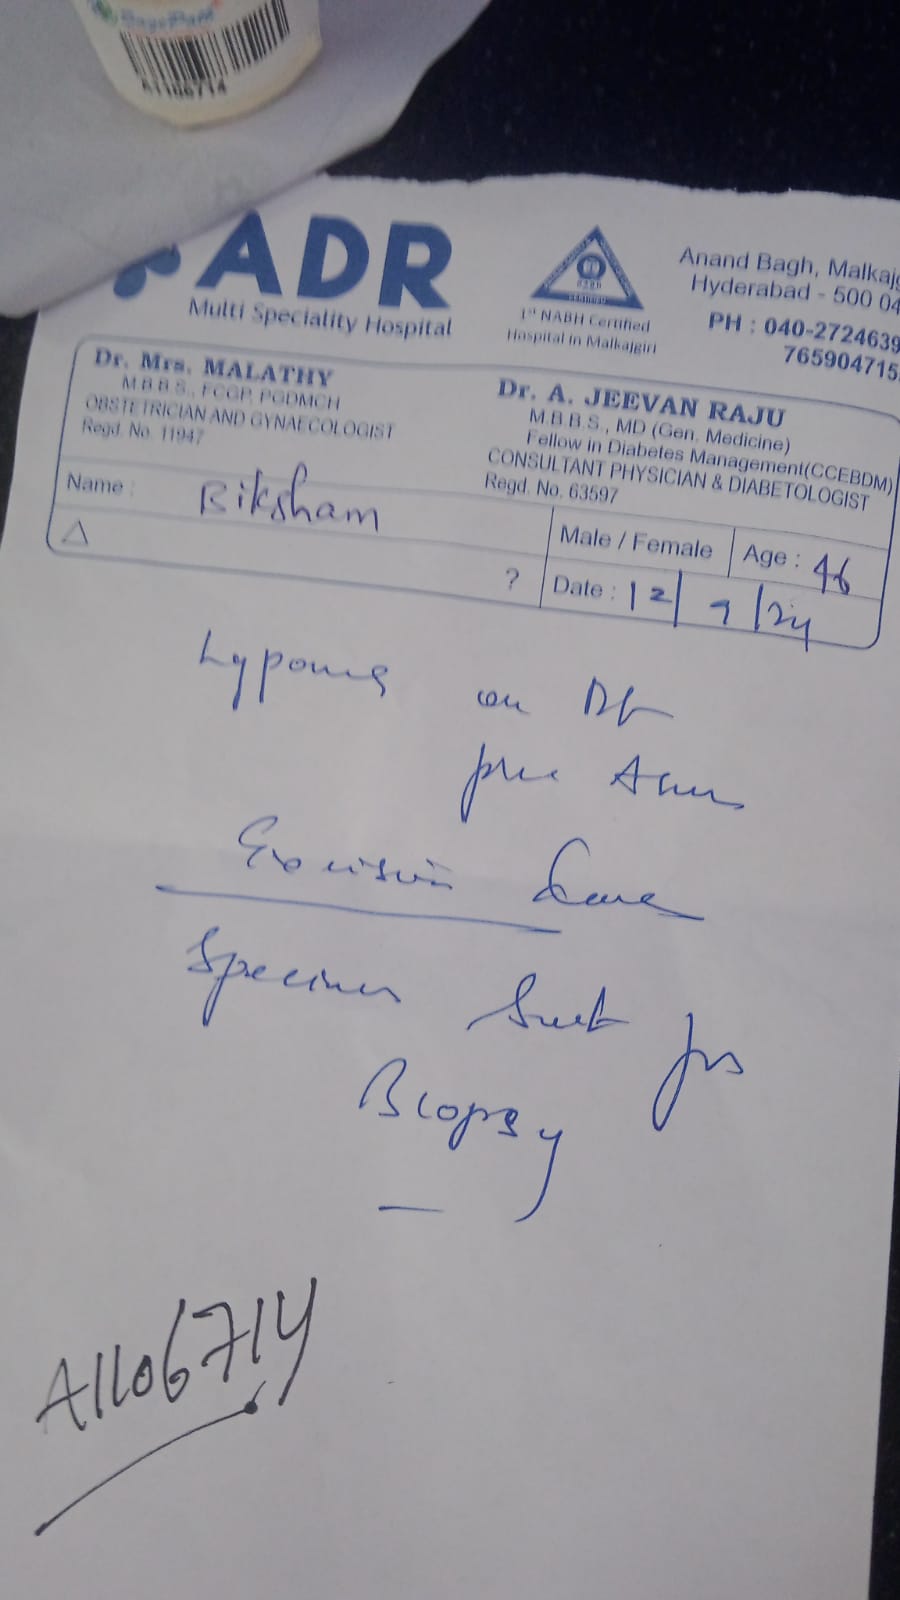 A1106714
ADR
Multi Speciality Hospital
1st NABH Certified
Hospital in Malkajgiri
Anand Bagh, Malkajg
Hyderabad - 500 04
PH : 040-2724639
765904715
Dr. Mrs. MALATHY
M.B.B.S., FCGP, PGDMCH
OBSTETRICIAN AND GYNAECOLOGIST
Regd. No. 11947
Dr. A. JEEVAN RAJU
M.B.B.S., MD (Gen. Medicine)
Fellow in Diabetes Management(CCEBDM)
CONSULTANT PHYSICIAN & DIABETOLOGIST
Regd. No. 63597
Name : Biksham
Male / Female Age : 46
Δ ? Date : 12/9/24
Lypoma on
Excision
Specimen Sent for
Biopsy
A1106714